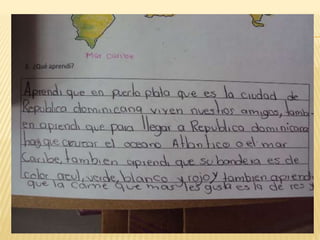 Mar caribe
3. ¿Qué aprendí?
Aprendi que en puerto plata que es la ciudad de
Republica dominicana viven nuestros amigos, tamb-
en aprendi que para llegar a Republica dominicana
hay que cruzar el oceano Atlantico o el mar
Caribe, tambien aprendi que su bandera es de
color azul, verde, blanco y rojo y tambien aprendi
que la carne que mas les gusta es la de res y